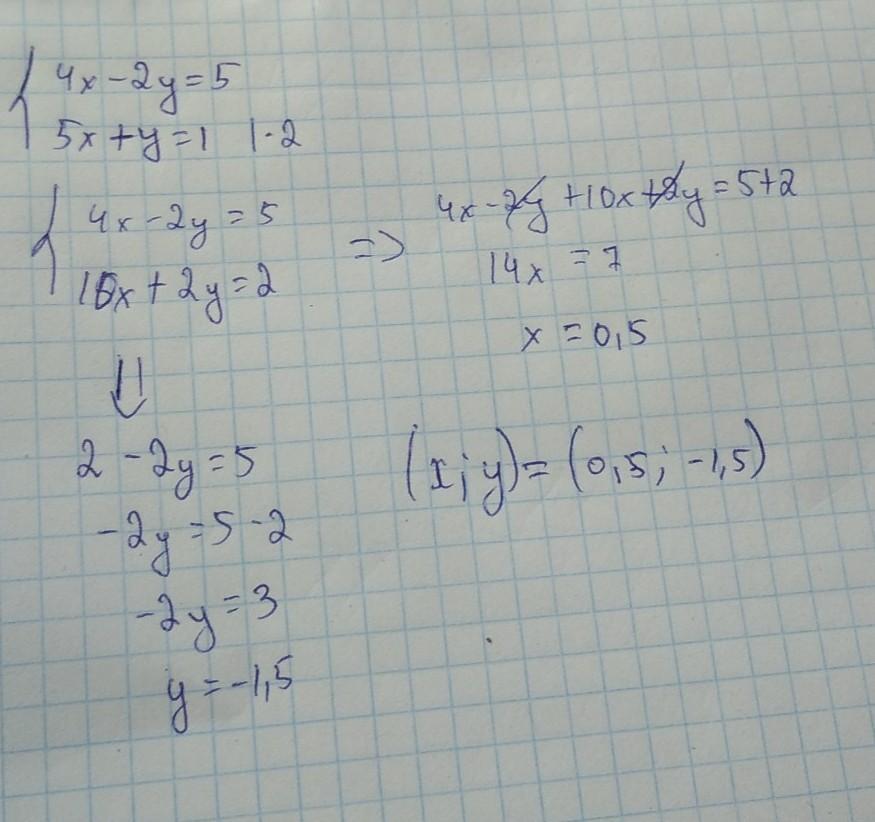 4x-2y=5
5x+y=1 |·2
4x-2y=5
10x+2y=2
=> 4x-2y+10x+2y=5+2
14x=7
x=0,5
2-2y=5
-2y=5-2
-2y=3
y=-1,5
(x;y)=(0,5;-1,5)